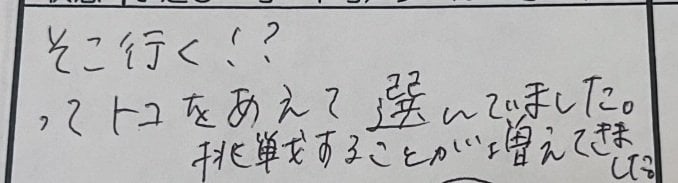 そこ行く!?
ってトコをあえて選んでいました。
挑戦することが増えてきま
した。